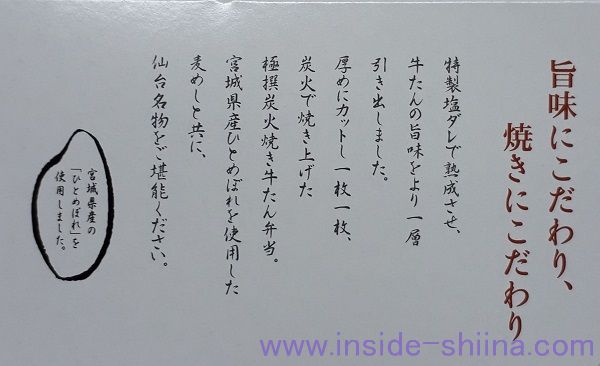 旨味にこだわり、
焼きにこだわり
特製塩ダレで熟成させ、
牛たんの旨味をより一層
引き出しました。
厚めにカットし一枚一枚、
炭火で焼き上げた
極撰炭火焼き牛たん弁当。
宮城県産ひとめぼれを使用した
麦めしと共に、
仙台名物をご堪能ください。
宮城県産の
「ひとめぼれ」を
使用しました。
www.inside-shiina.com